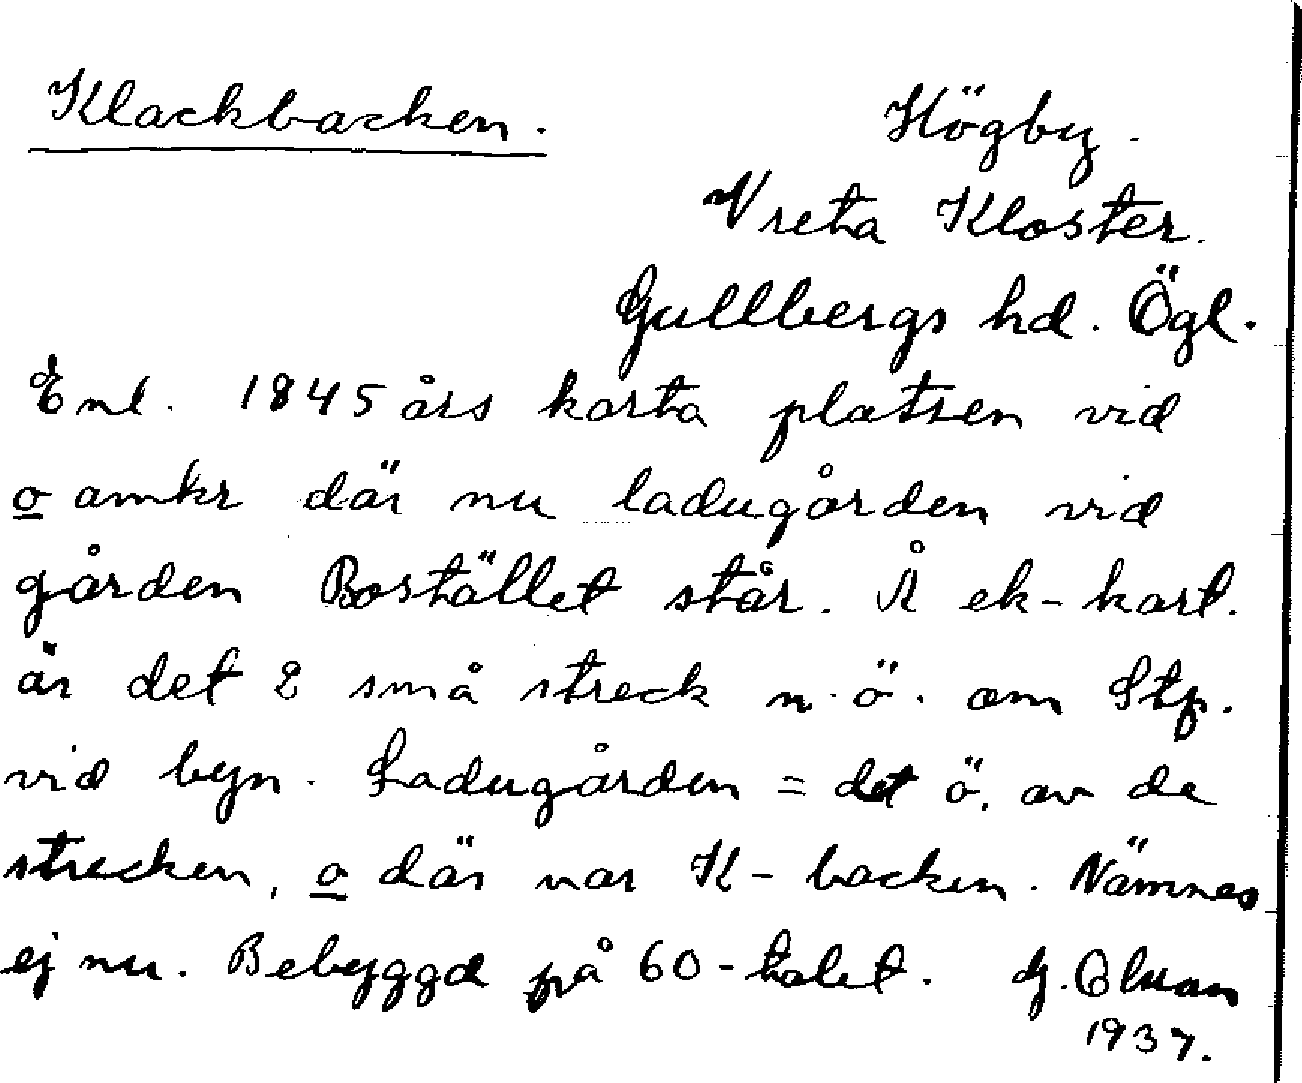 Klackbacken.
Högby.
Vreta Kloster.
Gullbergs hd. Ögl.
Enl. 1845 års karta platsen vid
o omkr där nu ladugården vid
gården Bostället står. Å ek-kart.
är det 2 små streck n.ö. om Stp.
vid byn. Ladugården = det ö. av de
strecken, o där var K-backen. Nämnes
ej nu. Bebyggd på 60-talet. G.
1937.